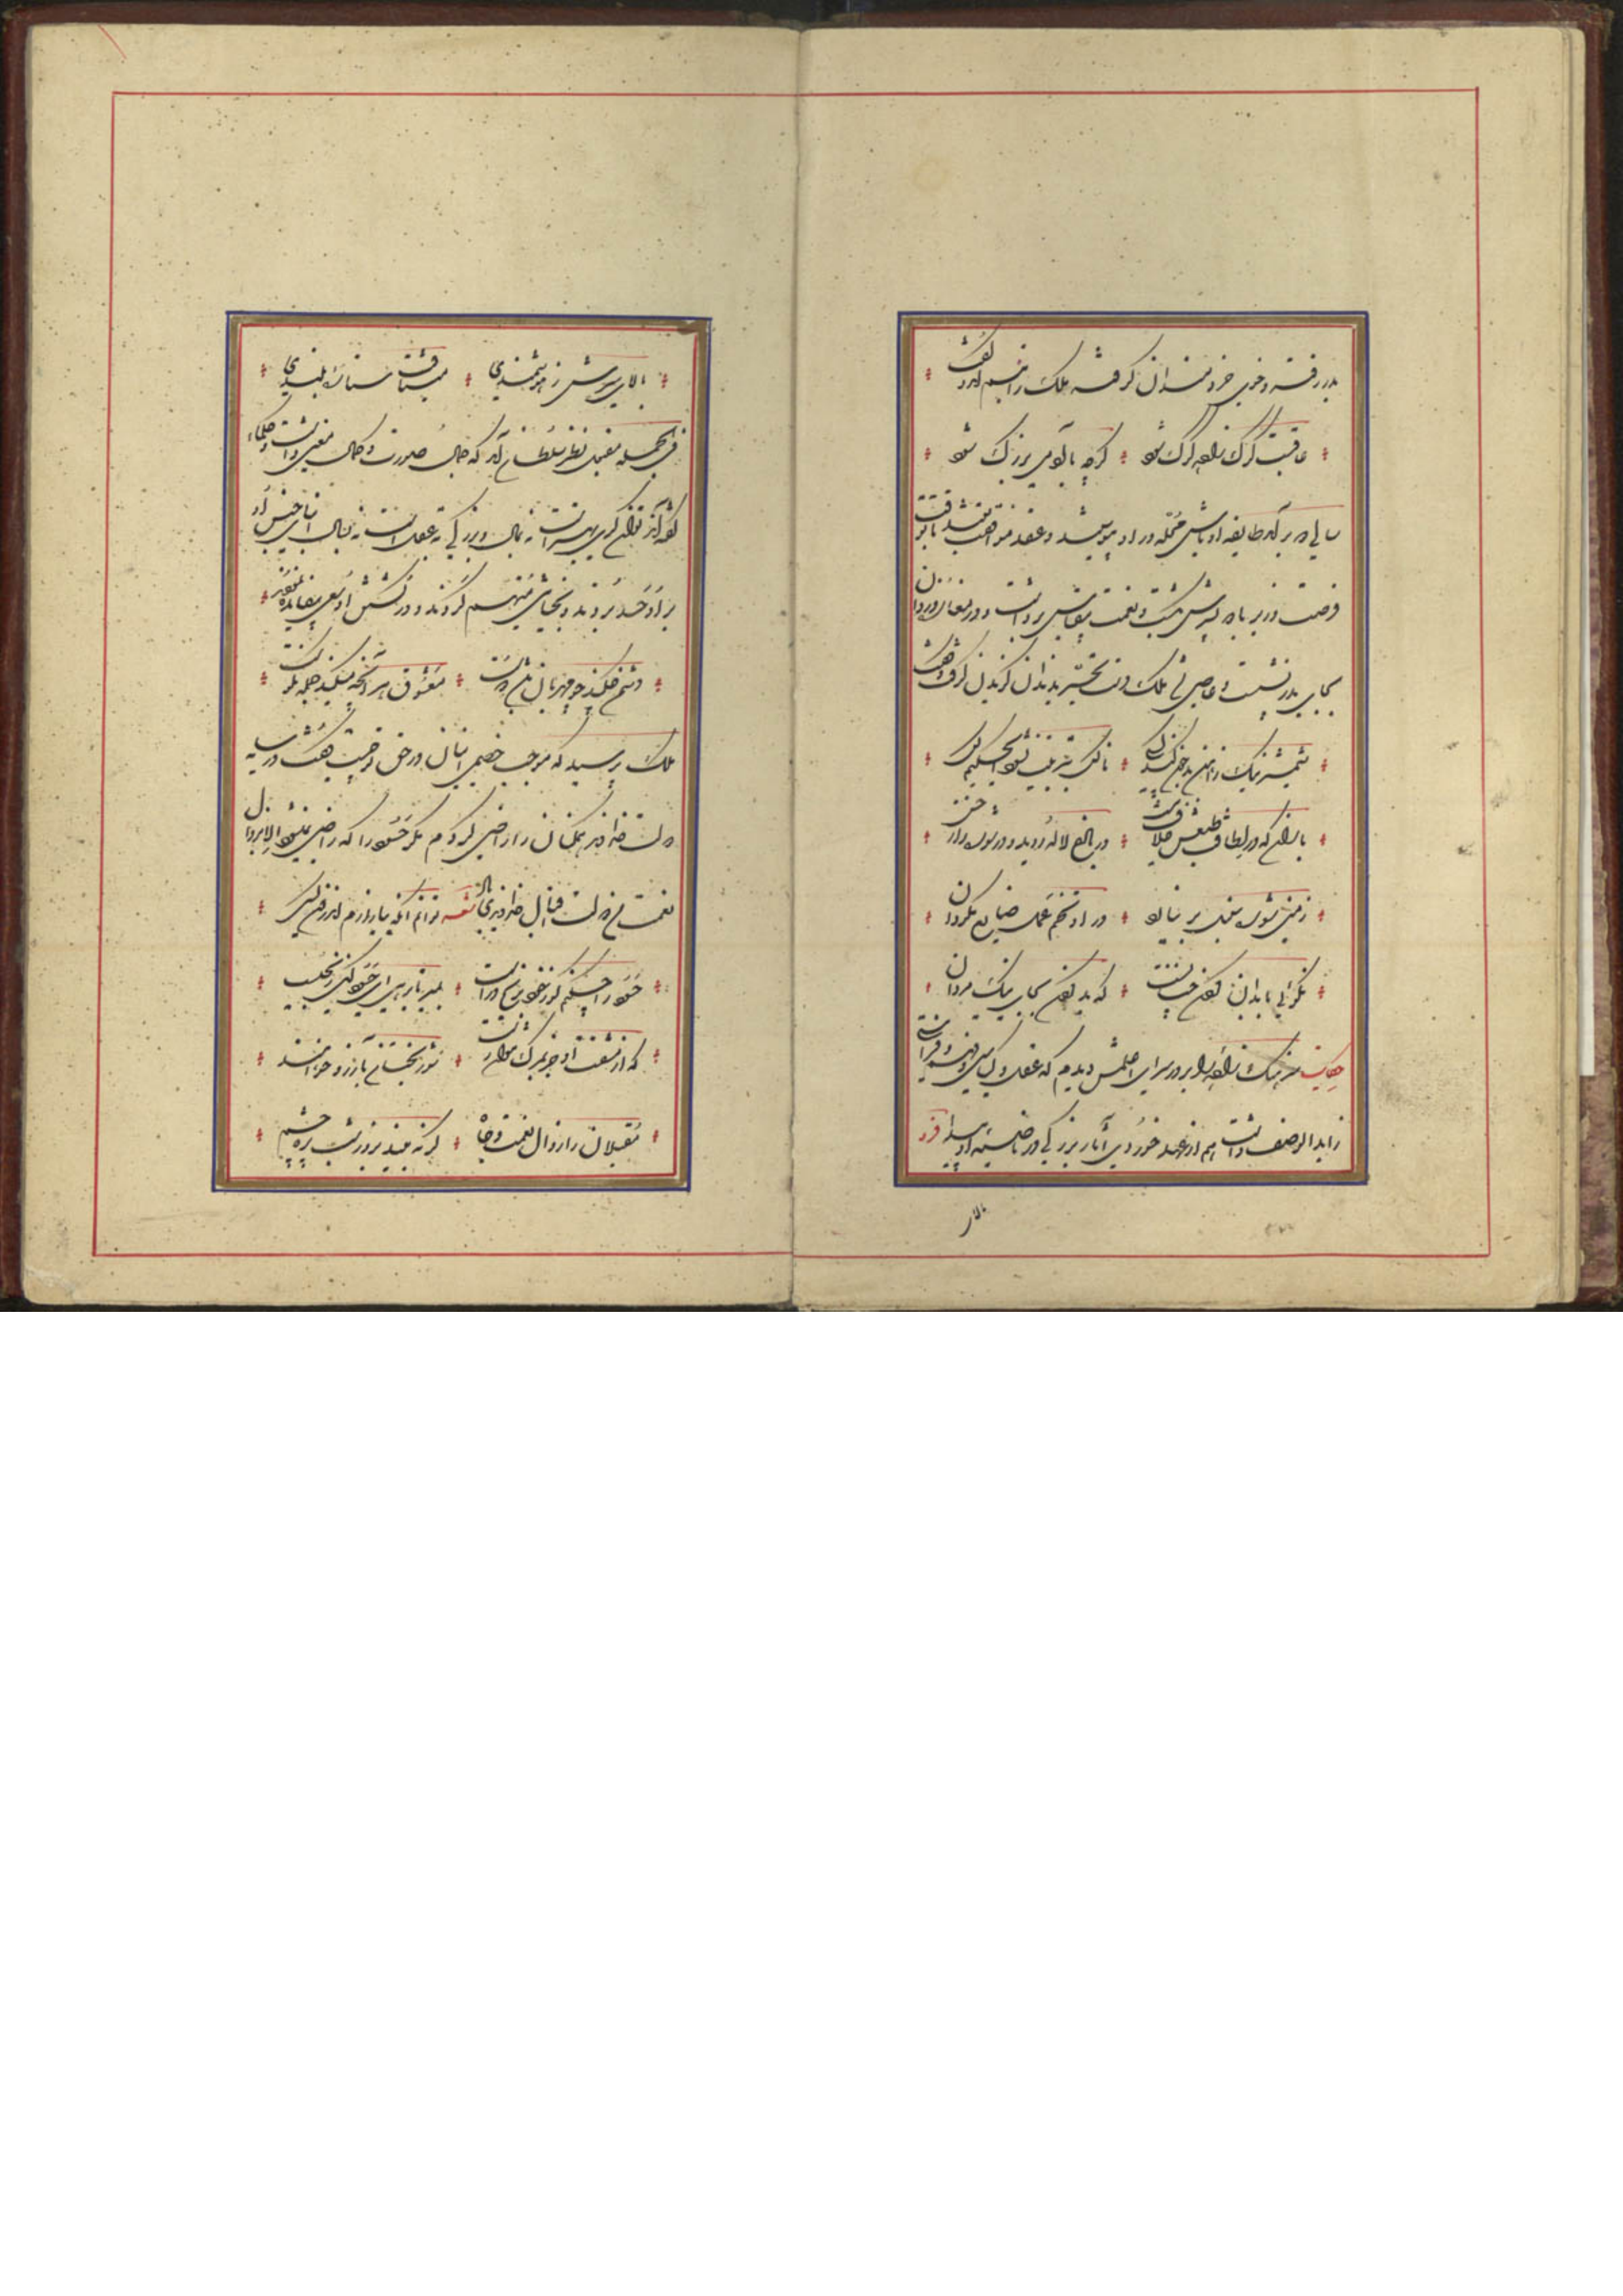 بدر رفته و خوی خردمندان گرفته ملک را تبسم آمد و گفت
عاقبت گرگ زاده گرگ شود گرچه با آدمی بزرگ شود
سالی دو بر آمد طایفه اوباش محله در او پیوستند و عقد موافقت بستند تا بوقت
فرصت وزیر با دو پسرش بکشت و نعمت بقیاس برداشت و در مغاره دزدان
بجای پدر نشست و عاصی شد ملک دست تحیر بدندان گزیدن گرفت و گفت
شمشیر نیک ز آهن بد چون کند کسی ناکس بتربیت نشود ای حکیم کس
باران که در لطافت طبعش خلاف نیست در باغ لاله روید و در شوره زار خس
زمین شوره سنبل بر نیارد در او تخم عمل ضایع مگردان
نکوئی با بدان کردن چنانست که بد کردن بجای نیک مردان
حکایت سرهنگ زاده را بر در سرای اغلمش دیدم که عقل و کیاستی و فهم و فراستی
زاید الوصف داشت هم از عهد خوردی آثار بزرگی در ناصیه او پیدا فرد
بالای
بالای سرش ز هوشمندی میتافت ستاره بلندی
فی الجمله مقبول نظر سلطان آمد که جمال صورت و کمال معنی داشت و حکما
گفته‌اند توانگری بهنر است نه بمال و بزرگی به عقل است نه بسال ابنای جنس او
بر او حسد بردند و بخیانتی متهم کردند و در کشتن او سعی بیفایده نمودند
دشمن چکند چو مهربان باشد دوست
ملک پرسید که موجب خصمی اینان در حق تو چیست گفت در سایه
دولت خداوندی همگنان را راضی کردم مگر حسود را که راضی نمیشود الا بزوال
نعمت من و دولت و اقبال خداوندی باد قطعه توانم آنکه نیازارم اندرون کسی
حسود را چکنم کو ز خود برنج در است بمیر تا برهی ای حسود کاین رنجیست
که از مشقت او جز بمرگ نتوان رست شوربختان بآرزو خواهند
مقبلان را زوال نعمت و جاه گر نه بیند بروز شب پره چشم